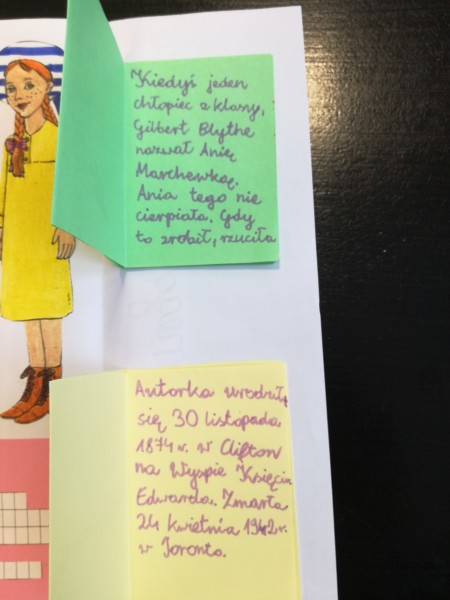 Kiedyś jeden
chłopiec z klasy,
Gilbert Blythe
nazwał Anię
Marchewką.
Ania tego nie
cierpiała. Gdy
to zrobił, rzuciła
Autorka urodziła
się 30 listopada
1874 r. w Clifton
na Wyspie Księcia
Edwarda. Zmarła
24 kwietnia 1942 r.
w Toronto.